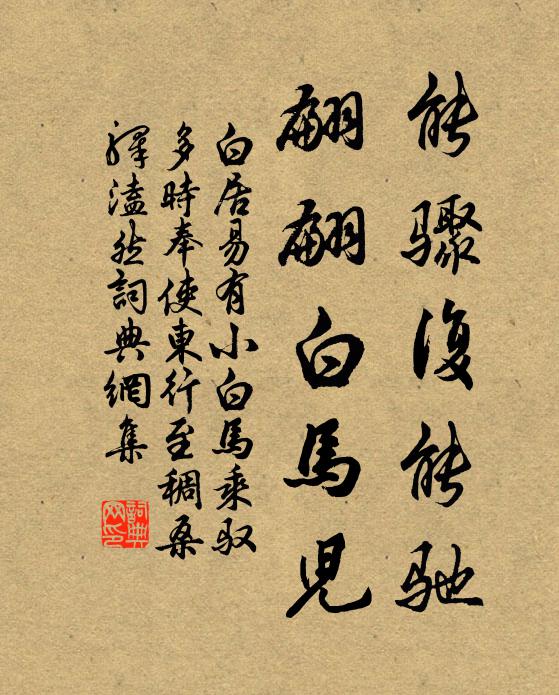 能驟復能馳
翩翩白馬兒
白居易有小白馬乘馭
多時奉使東行至稠桑
驛溘然詞典網集
詞典网印